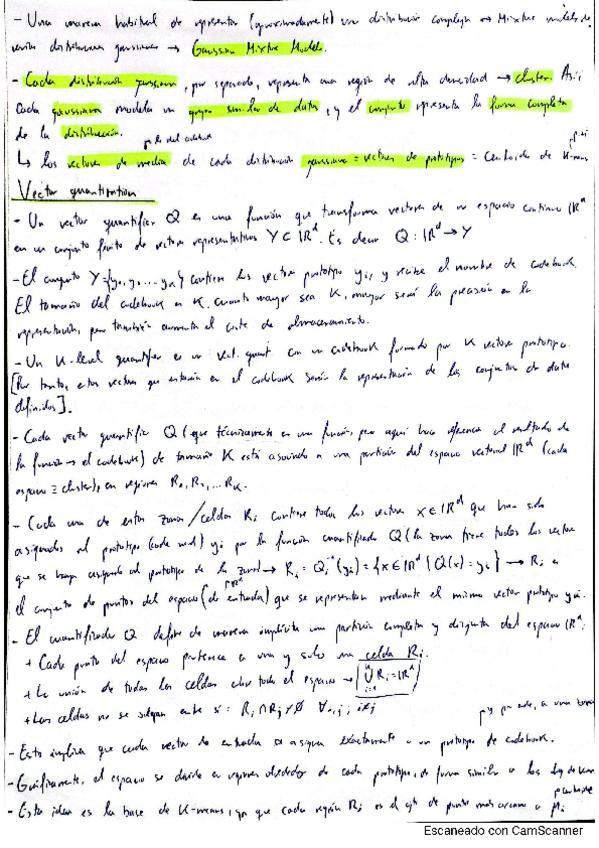 - Una manera habitual de representar (aproximadamente) una distribución compleja ↔ Mixture models de
varias distribuciones gaussianas → Gaussian Mixture Models.
- Cada distribución gaussiana, por separado, representa una región de alta densidad → cluster. Así
cada gaussiana modela un grupo similar de datos, y el conjunto representa la forma completa
de la distribución.
↳ los vectores de media de cada distribución gaussiana = vectores de prototipos = centroides de K-means
Vector quantization
- Un vector quantifier Q es una función que transforma vectores de un espacio continuo ℝᵈ
en un conjunto finito de vectores representativos Y ⊂ ℝᵈ. Es decir Q: ℝᵈ → Y
- El conjunto Y = {y₁, y₂, ... yₖ} contiene los vectores prototipo yᵢ, y recibe el nombre de codebook.
El tamaño del codebook es K. Cuanto mayor sea K, mayor será la precisión en la
representación, pero también aumenta el coste de almacenamiento.
- Un K-level quantifier es un vect. quant con un codebook formado por K vectores prototipo.
[Por tanto, estos vectores que estarían en el codebook serían la representación de los conjuntos de datos
definidos].
- Cada vector quantifier Q (que técnicamente es una función, pero aquí hace referencia al resultado de
la función → el codebook) de tamaño K está asociado a una partición del espacio vectorial ℝᵈ (cada
espacio ≡ cluster), en regiones R₁, R₂, ... Rₖ.
- Cada una de estas zonas/celdas Rᵢ contiene todos los vectores x ∈ ℝᵈ que han sido
asignados al prototipo (code word) yᵢ por la función cuantificadora Q (la zona tiene todos los vectores
que se hayan asignado al prototipo de la zona) → Rᵢ = Qᵢ⁻¹(yᵢ) = {x ∈ ℝᵈ | Q(x) = yᵢ} → Rᵢ es
el conjunto de puntos del espacio (de entrada) que se representan mediante el mismo vector prototipo yᵢ.
- El cuantificador Q define de manera implícita una partición completa y disjunta del espacio ℝᵈ:
+ Cada punto del espacio pertenece a una y solo una celda Rᵢ.
+ La unión de todas las celdas cubre todo el espacio → ⋃ Rᵢ = ℝᵈ
+ Las celdas no se solapan entre sí: Rᵢ ∩ Rⱼ ≠ ∅ ∀ i, j; i ≠ j
- Esto implica que cada vector de entrada se asigna exactamente a un prototipo de codebook.
- Gráficamente, el espacio se divide en regiones alrededor de cada prototipo, de forma similar a los
- Esta idea es la base de K-means, ya que cada región Rᵢ es el cjto de puntos más cercano a μᵢ
Escaneado con CamScanner